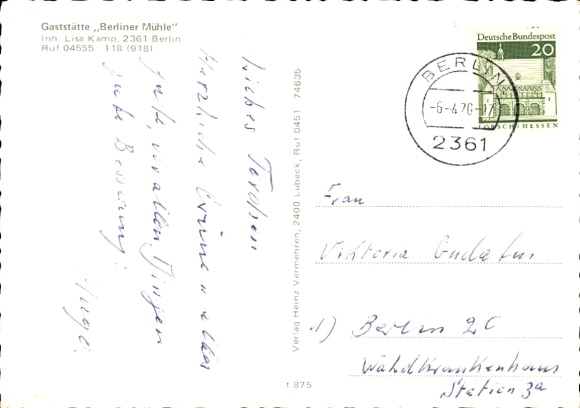 Gaststätte „Berliner Mühle"
Inh. Lisa Kamp, 2361 Berlin
Ruf 04555 118 (918)
Liebes
Herzliche Grüsse u. alles
Gute, vor allen Dingen
gute Besserung.
Verlag Heinz Vermehren, 2400 Lübeck, Ruf 0451 74635
t 875
Deutsche Bundespost
20
LORSCH/HESSEN
BERLIN
-6-4.70-17
2361
Frau
Viktoria
1) Berlin 20
Waldkrankenhaus
Station 3a